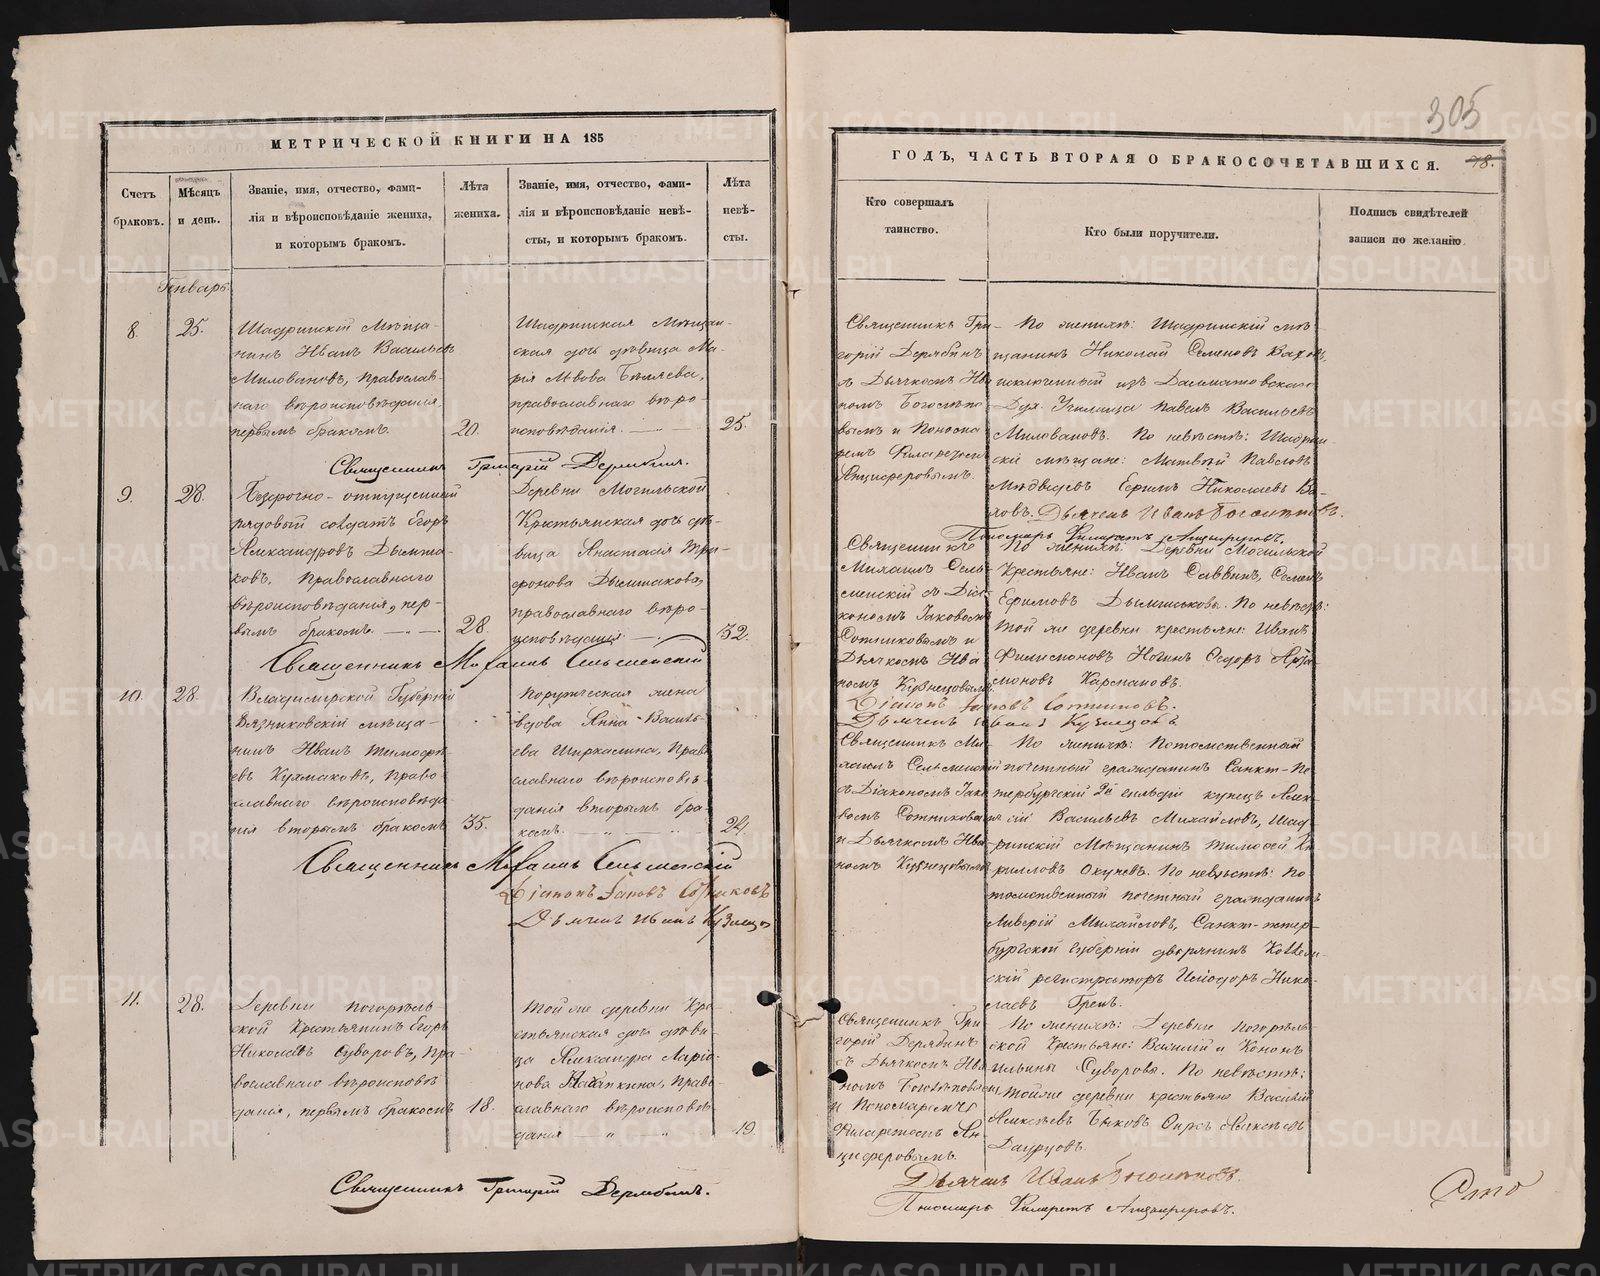 305
МЕТРИЧЕСКОЙ КНИГИ НА 185
Счетъ браковъ.
Мѣсяцъ и день.
Званіе, имя, отчество, фами-
лія и вѣроисповѣданіе жениха,
и которымъ бракомъ.
Лѣта
жениха.
Званіе, имя, отчество, фами-
лія и вѣроисповѣданіе невѣ-
сты, и которымъ бракомъ.
Лѣта
невѣ-
сты.
Генварь.
8.
25.
Шадринскій мѣща-
нинъ Иванъ Васильевъ
Миловановъ, православ-
наго вѣроисповѣданія
первымъ бракомъ.
20.
Шадринская мѣщан-
ская дочь дѣвица Ма-
рія Львова Бѣляева,
православнаго вѣро-
исповѣданія.
25.
Священникъ Григорій Дерябинъ.
9.
28.
отпущенный
рядовый солдатъ Егоръ
Александровъ
православнаго
вѣроисповѣданія, пер-
вымъ бракомъ.
28.
Деревни Могильской
Крестьянская дочь дѣ-
вица Анастасія Три-
фонова
православнаго вѣро-
исповѣданія
32.
Священникъ Михаилъ Сельменскій
10.
28.
Владимірской Губерніи
Вязниковскій мѣща-
нинъ Иванъ Тимофѣ-
евъ Кулмаковъ, право
славнаго вѣроисповѣда
нія вторымъ бракомъ
35.
Порутческая жена
вдова Анна Василь-
ева Ширкалина, Прав
славнаго вѣроисповѣ-
данія вторымъ бра-
комъ.
24.
Священникъ Михаилъ Сельменскій
Діаконъ Іаковъ Сотниковъ
Дьячекъ Иванъ Кузнецо
11.
28.
Деревни Погорѣль
ской Крестьянинъ Егоръ
Николаевъ Суворовъ, Пра-
вославнаго вѣроисповѣ
данія, первымъ бракомъ
18.
Той же деревни Кре-
стьянская дочь дѣви-
ца Александра Ларіо-
нова право-
славнаго вѣроисповѣ-
данія
19.
Священникъ Григорій Дерябинъ.
ГОДЪ, ЧАСТЬ ВТОРАЯ О БРАКОСОЧЕТАВШИХСЯ.
78.
Кто совершалъ
таинство.
Кто были поручители.
Подпись свидѣтелей
записи по желанію.
Священникъ Гри-
горій Дерябинъ
съ Дьячкомъ Ива
номъ Боголѣпо
вымъ и Понома
ремъ Филаретомъ
Анциферовымъ.
По женихѣ: Шадринскій мѣ-
щанинъ Николай Семеновъ
исключенный изъ Далматовскаго
Дух. Училища Павелъ Васильевъ
Миловановъ. По невѣстѣ: Шадрин-
скіе мѣщане: Матвѣй Павловъ
Медвѣдевъ Ефимъ Николаевъ
Дьячекъ Иванъ Боголѣповъ.
Пономарь Филаретъ Анциферовъ.
Священникъ
Михаилъ Сель-
менскій съ Діа-
кономъ Іаковомъ
Сотниковымъ и
Дьячкомъ Ива
номъ Кузнецовымъ
По женихѣ: Деревни Могильской
Крестьяне: Иванъ Саввинъ, Семенъ
Ефимовъ По невѣстѣ:
той же деревни крестьяне: Иванъ
Филимоновъ Федоръ Арта-
моновъ
Діаконъ Іаковъ Сотниковъ.
Дьячекъ Иванъ Кузнецовъ
Священникъ Ми-
хаилъ Сельменскій
съ Діакономъ Іако
вомъ Сотниковы
и Дьячкомъ Ива
номъ Кузнецовымъ
По женихѣ: Потомственный
почетный гражданинъ Санкт-Пе
тербургскій 2й гильдіи купецъ Алек-
сій Васильевъ Михайловъ, Шад-
ринскій Мѣщанинъ Тимофей Ки
рилловъ Окуневъ. По невѣстѣ: По
томственный почетный гражданинъ
Ливерій Михайловъ, Санкт-Петер-
бургской Губерніи дворянинъ Коллеж-
скій регистраторъ Иліодоръ Нико-
лаевъ
Священникъ Гри
горій Дерябинъ
съ Дьячкомъ Ива
номъ Боголѣповымъ
и Пономаремъ
Филаретомъ Ан
циферовымъ.
По женихѣ: Деревни Погорѣль-
ской Крестьяне: Василій и Кононъ
Ильины Суворовы. По невѣстѣ:
тойже деревни крестьяне Василій
Алексѣевъ Быковъ Алексѣевъ
Дьячекъ Иванъ Боголѣповъ.
Пономарь Филаретъ Анциферовъ.
METRIKI.GASO-URAL.RU